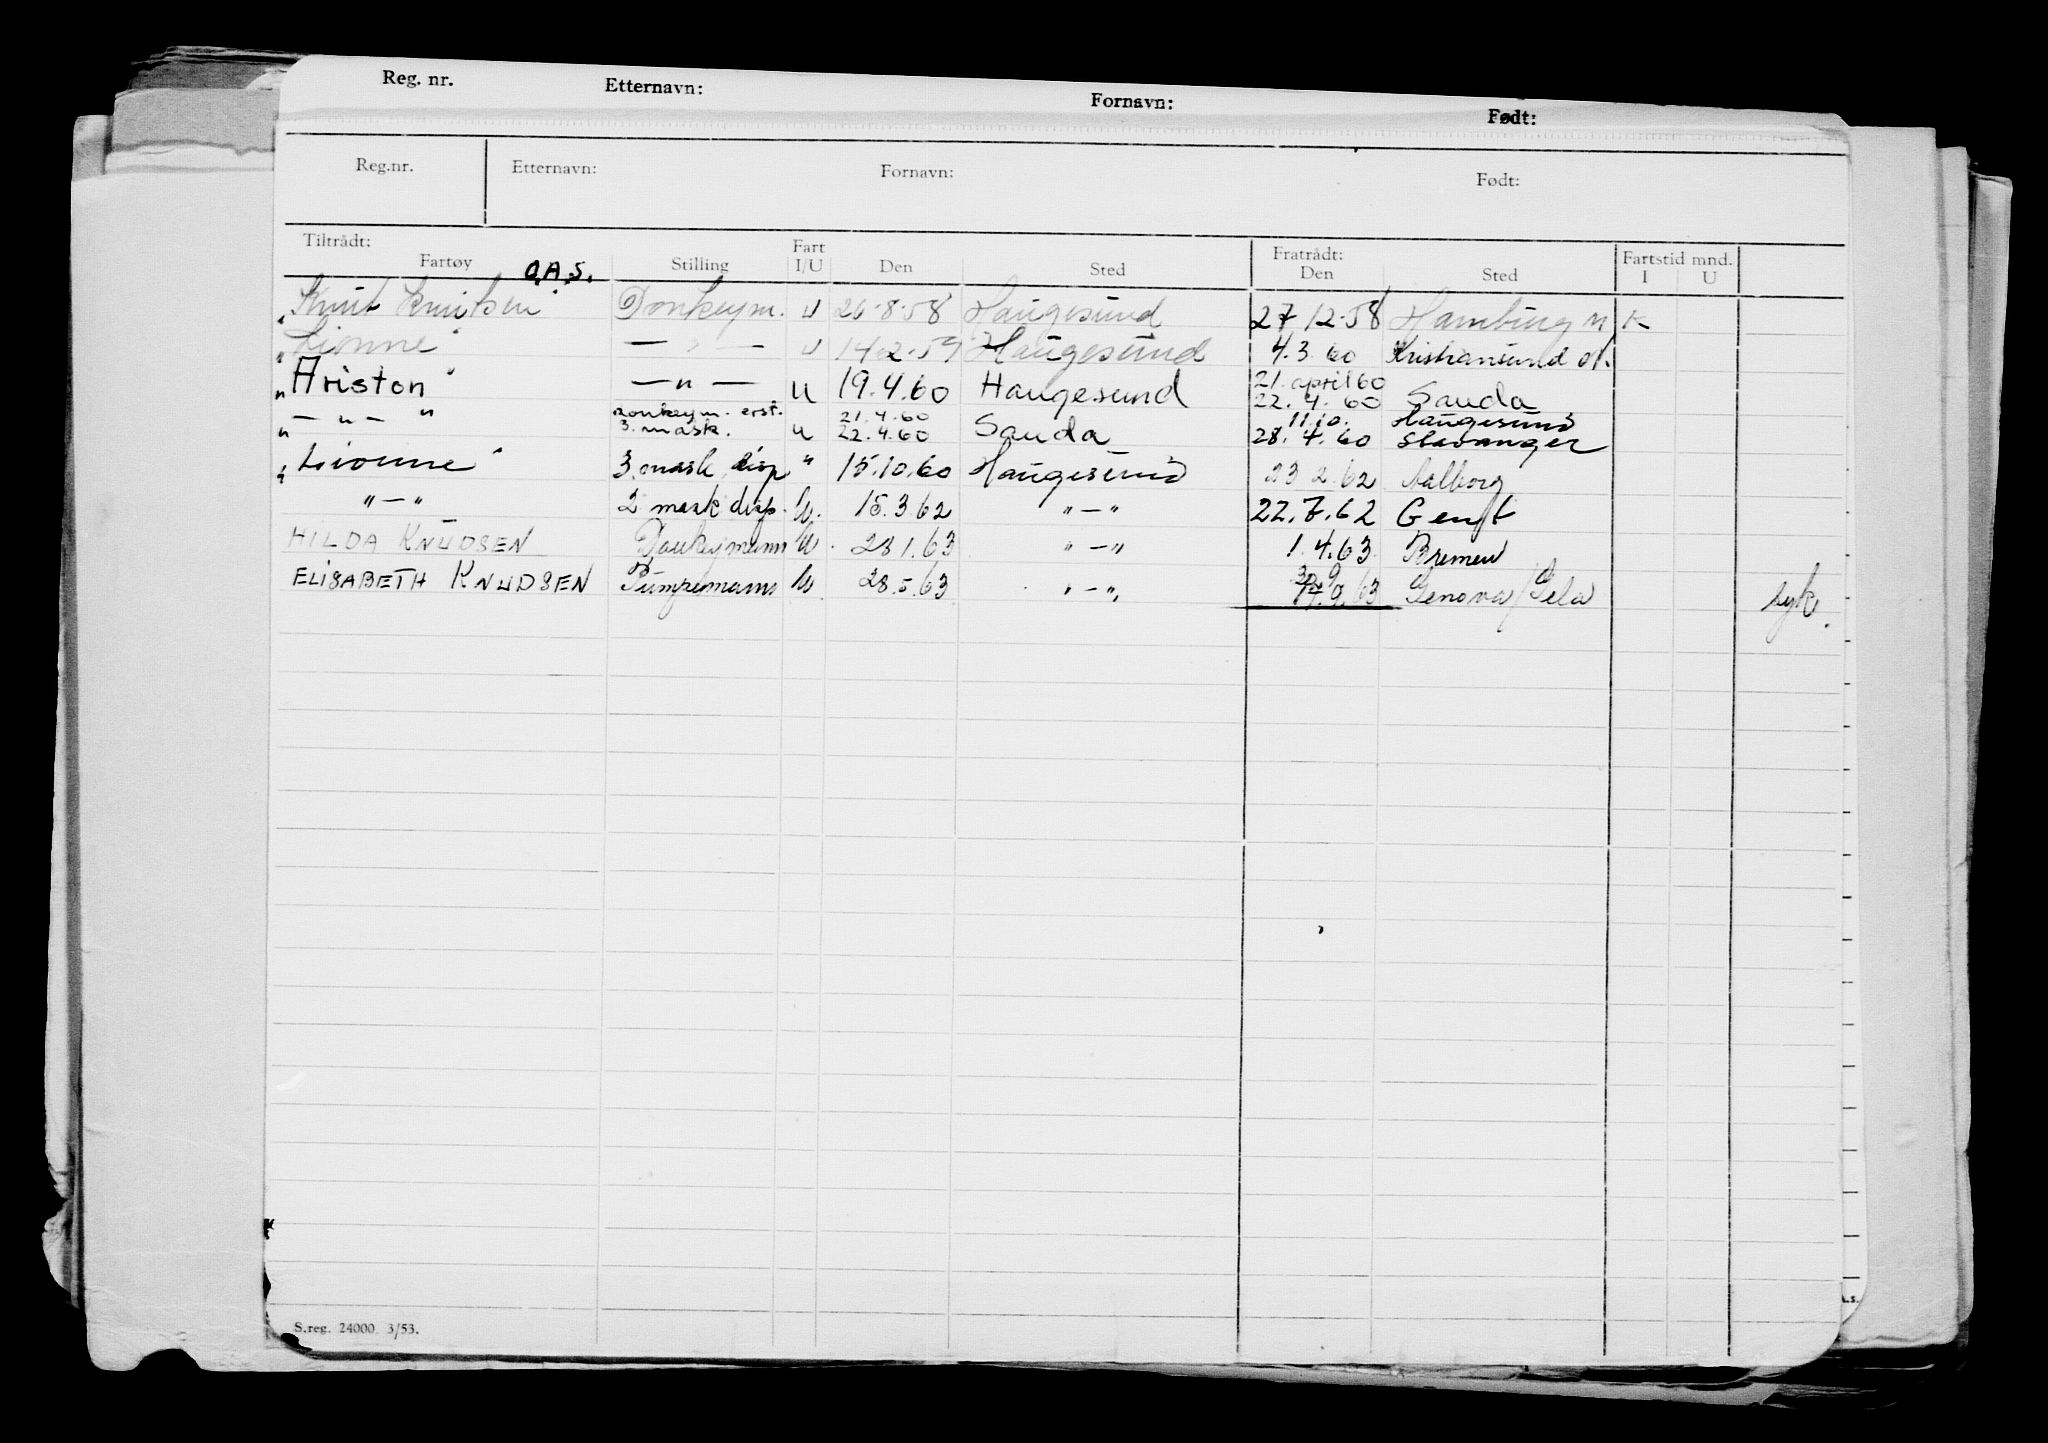 Reg. nr. Etternavn: Fornavn: Født:
Reg.nr. Etternavn: Fornavn: Født:
Tiltrådt: Fart Fratrådt: Fartstid mnd.
Fartøy O.A.S. Stilling I/U Den Sted Den Sted I U
" Knut Knutsen Donkeym. u 26-8-58 Haugesund 27/12-58 Hamburg N K
" Lionne " — " — u 14.2.59 Haugesund 4.3.60 Kristiansund N.
" Ariston " — " — u 19.4.60 Haugesund 21. april 60 22.4.60 Sauda
" — " — " Donkeym. erst. 3. mask. u 21.4.60 22.4.60 Sauda 11.10. 28.4.60 Haugesund Stavanger
" Lionne " 3. mask. disp " 15.10.60 Haugesund 23 2.62 Aalborg
" — " 2 mask disp. U. 15.3 62 " — " 22.7.62 Gent
HILDA KNUDSEN Donkeymann U. 28 1.63 " — " 1.4.63. Bremen
ELISABETH KNUDSEN Pumpemann U 28.5.63 " — " 9.63 Genova/Gela syk.
S.reg. 24000 3/53.
A.s.